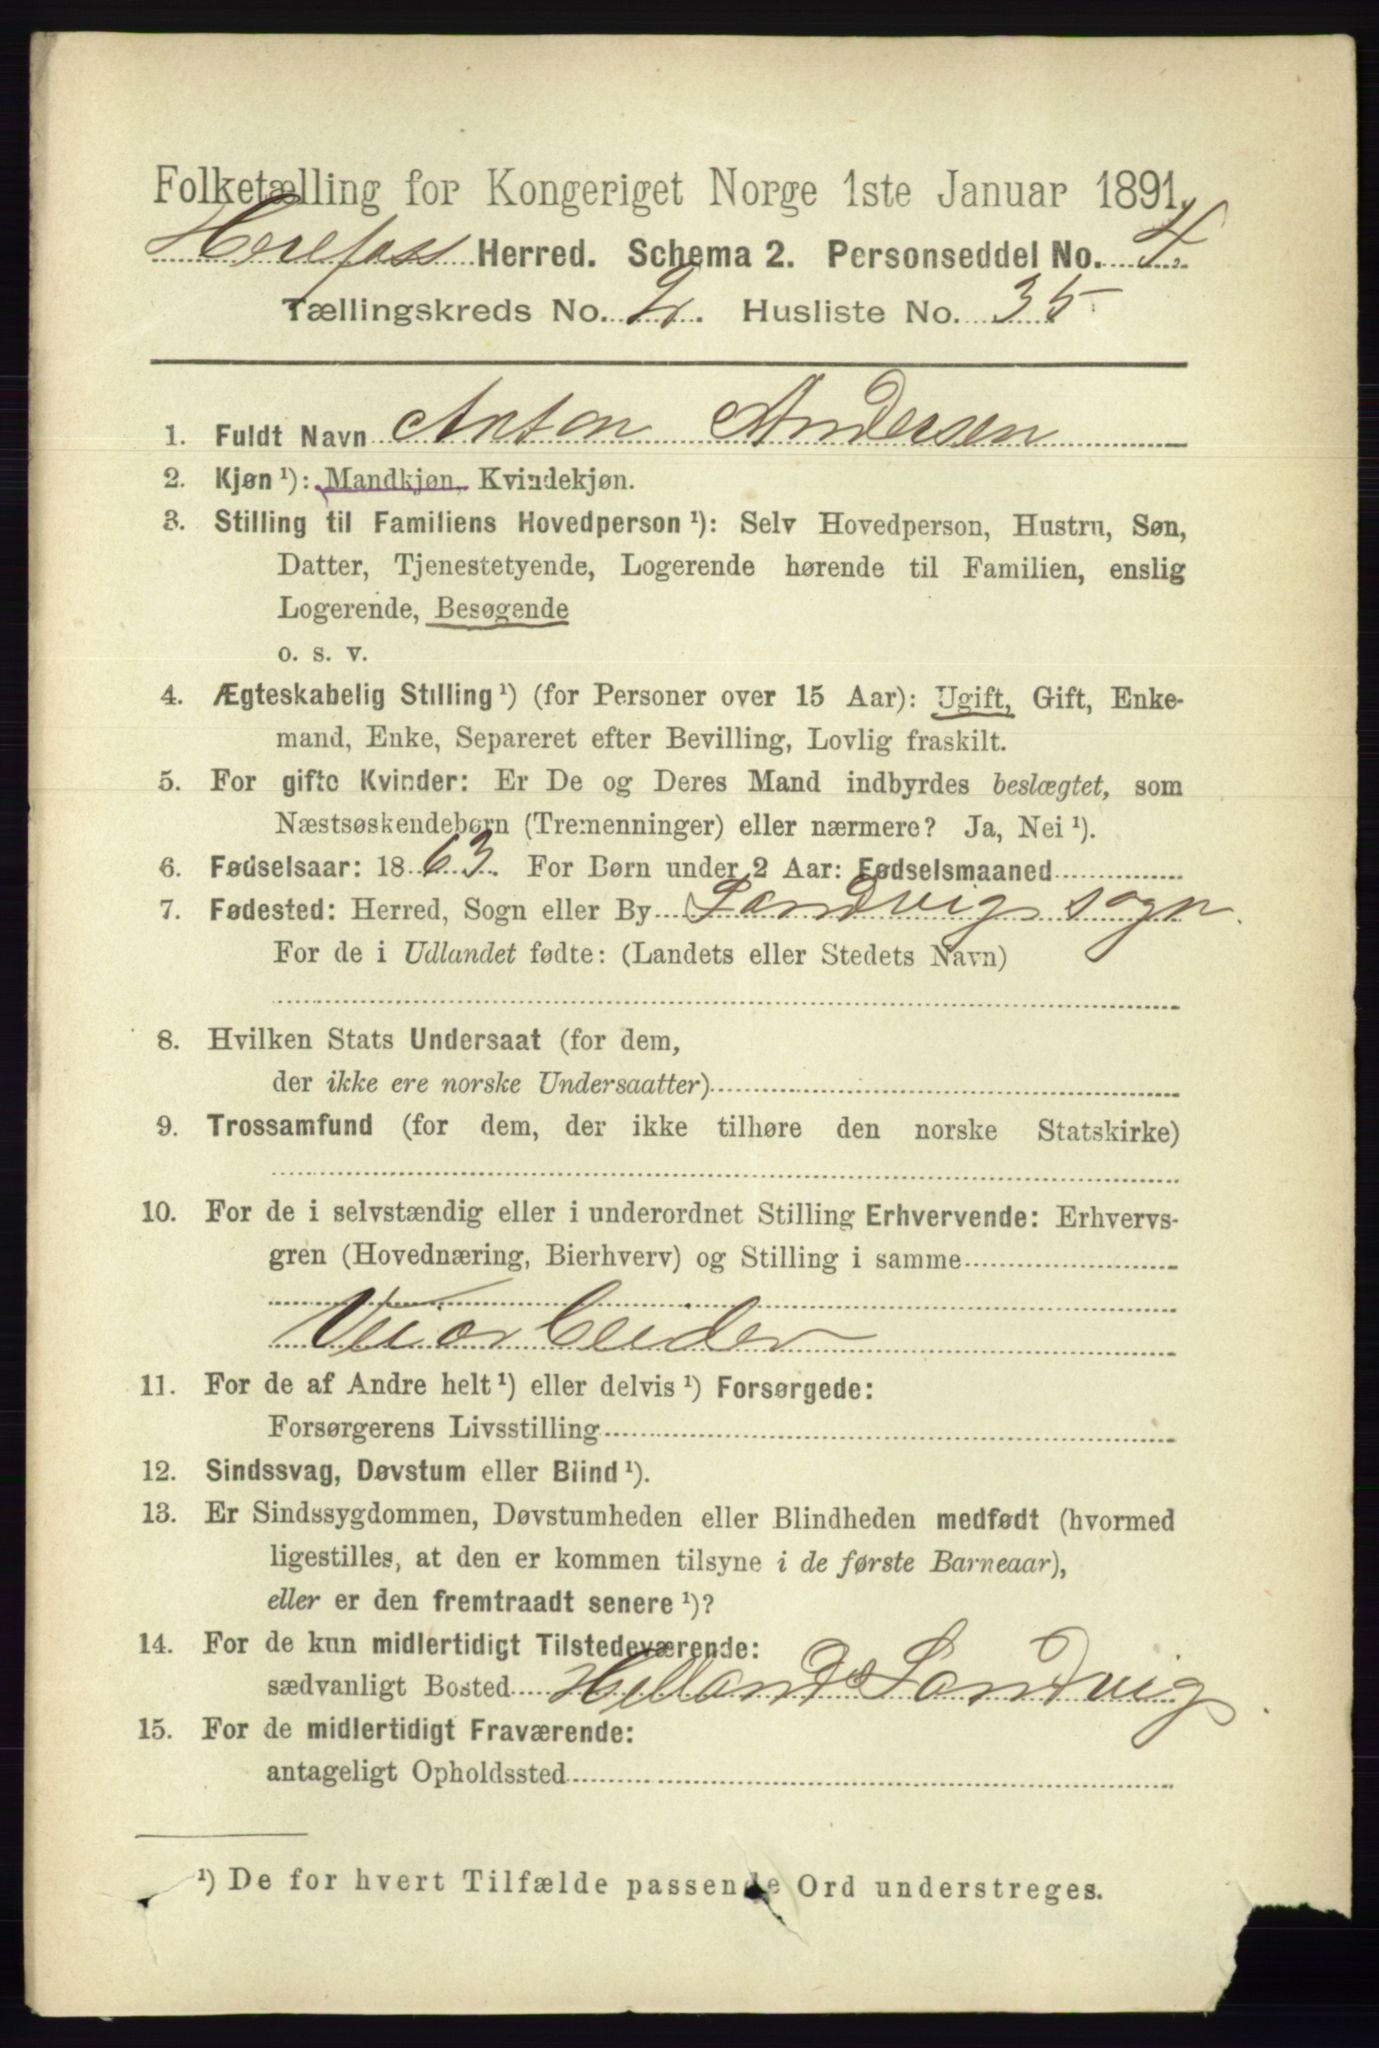 Folketælling for Kongeriget Norge 1ste Januar 1891.
Herefoss Herred. Schema 2. Personseddel No. 4.
Tællingskreds No. 2. Husliste No. 35
1. Fuldt Navn Anton Andersen
2. Kjøn ¹): Mandkjøn, Kvindekjøn.
3. Stilling til Familiens Hovedperson ¹): Selv Hovedperson, Hustru, Søn,
Datter, Tjenestetyende, Logerende hørende til Familien, enslig
Logerende, Besøgende
o. s. v.
4. Ægteskabelig Stilling ¹) (for Personer over 15 Aar): Ugift, Gift, Enke-
mand, Enke, Separeret efter Bevilling, Lovlig fraskilt.
5. For gifte Kvinder: Er De og Deres Mand indbyrdes beslægtet, som
Næstsøskendebørn (Tremenninger) eller nærmere? Ja, Nei ¹).
6. Fødselsaar: 1863. For Børn under 2 Aar: Fødselsmaaned
7. Fødested: Herred, Sogn eller By Landvig sogn.
For de i Udlandet fødte: (Landets eller Stedets Navn)
8. Hvilken Stats Undersaat (for dem,
der ikke ere norske Undersaatter)
9. Trossamfund (for dem, der ikke tilhøre den norske Statskirke)
10. For de i selvstændig eller i underordnet Stilling Erhvervende: Erhvervs-
gren (Hovednæring, Bierhverv) og Stilling i samme
Veiarbeider
11. For de af Andre helt ¹) eller delvis ¹) Forsørgede:
Forsørgerens Livsstilling
12. Sindssvag, Døvstum eller Blind ¹).
13. Er Sindssygdommen, Døvstumheden eller Blindheden medfødt (hvormed
ligestilles, at den er kommen tilsyne i de første Barneaar),
eller er den fremtraadt senere ¹)?
14. For de kun midlertidigt Tilstedeværende:
sædvanligt Bosted Helland Landvig
15. For de midlertidigt Fraværende:
antageligt Opholdssted
¹) De for hvert Tilfælde passende Ord understreges.